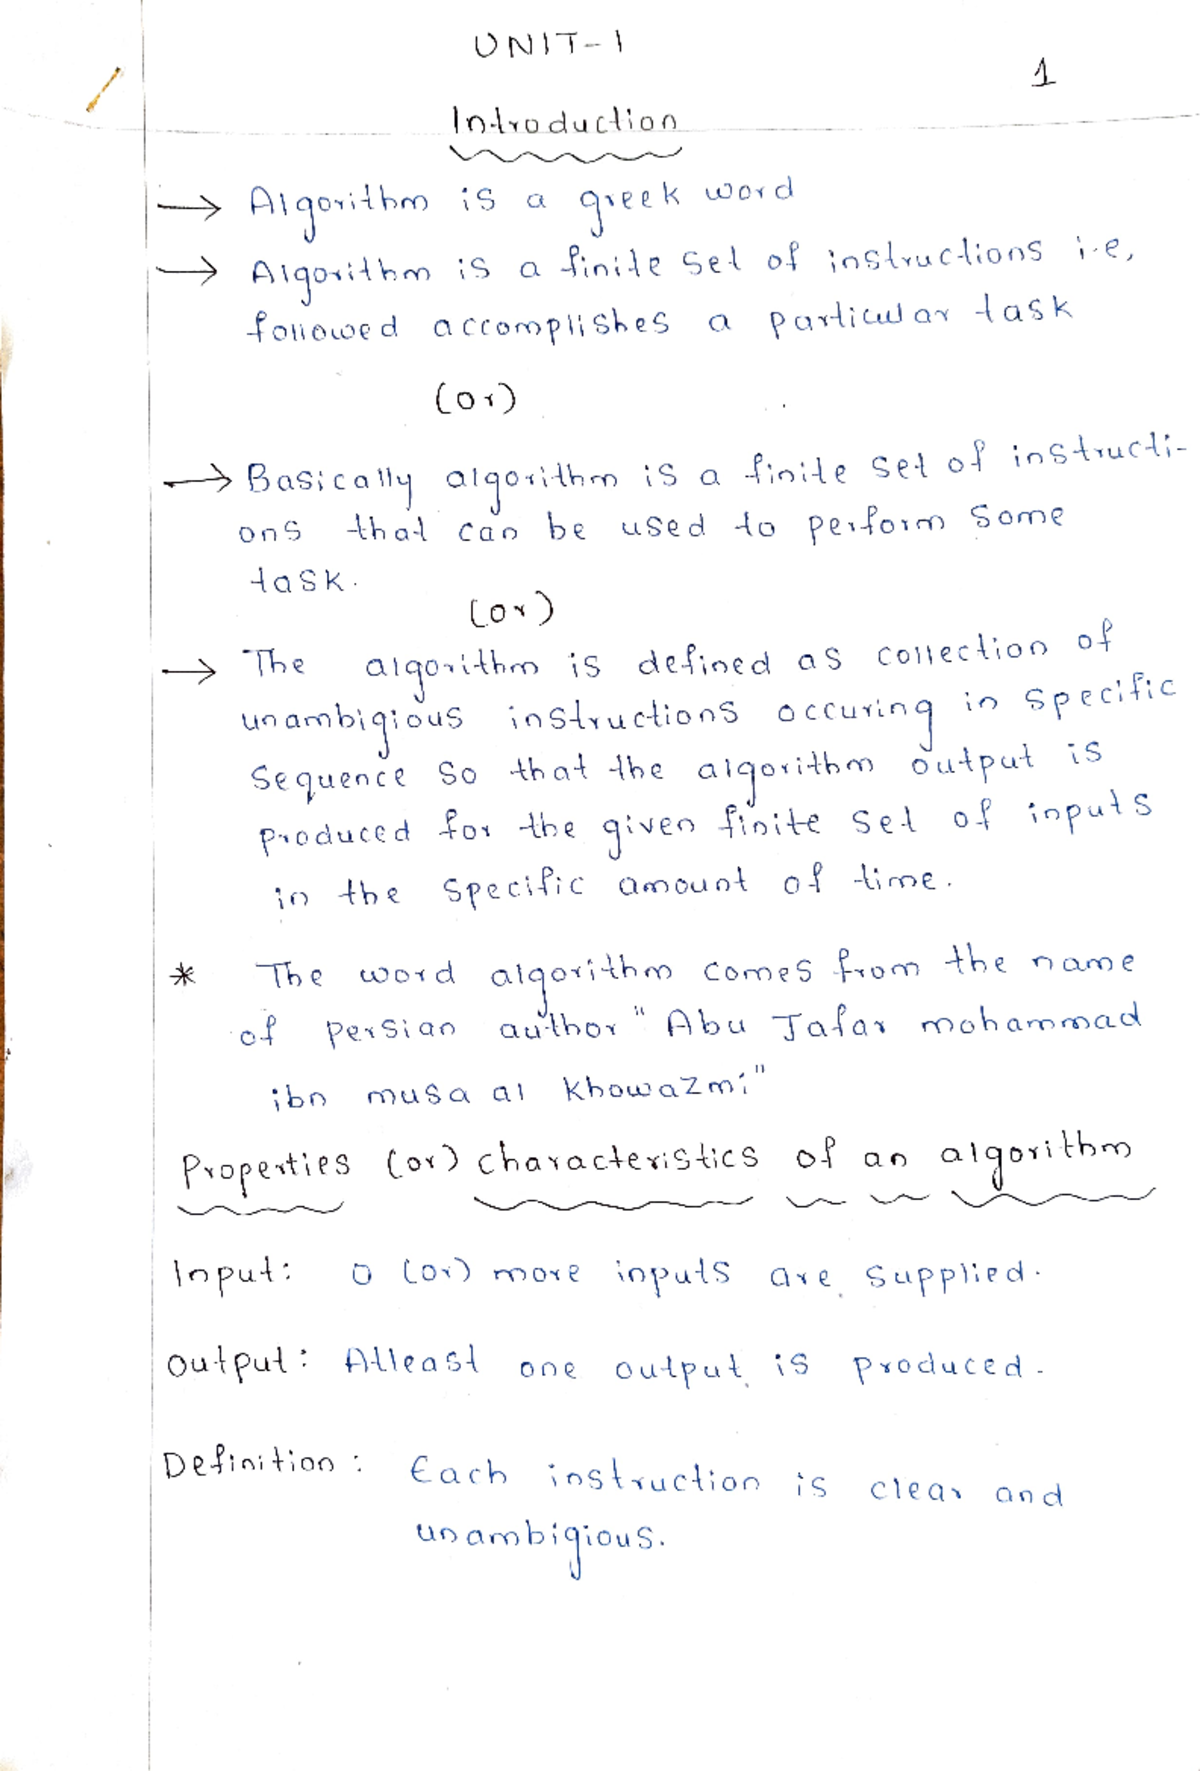 UNIT-1
1
Introduction
→ Algorithm is a greek word
→ Algorithm is a finite set of instructions i.e,
followed accomplishes a particular task
(or)
→ Basically algorithm is a finite set of instructi-
ons that can be used to perform some
task.
(or)
→ The algorithm is defined as collection of
unambigious instructions occuring in specific
sequence so that the algorithm output is
produced for the given finite set of inputs
in the specific amount of time.
* The word algorithm comes from the name
of persian author "Abu Jafar mohammad
ibn musa al khowazmi"
Properties (or) characteristics of an algorithm
Input: 0 (or) more inputs are supplied.
output: Atleast one output is produced.
Definition: Each instruction is clear and
unambigious.